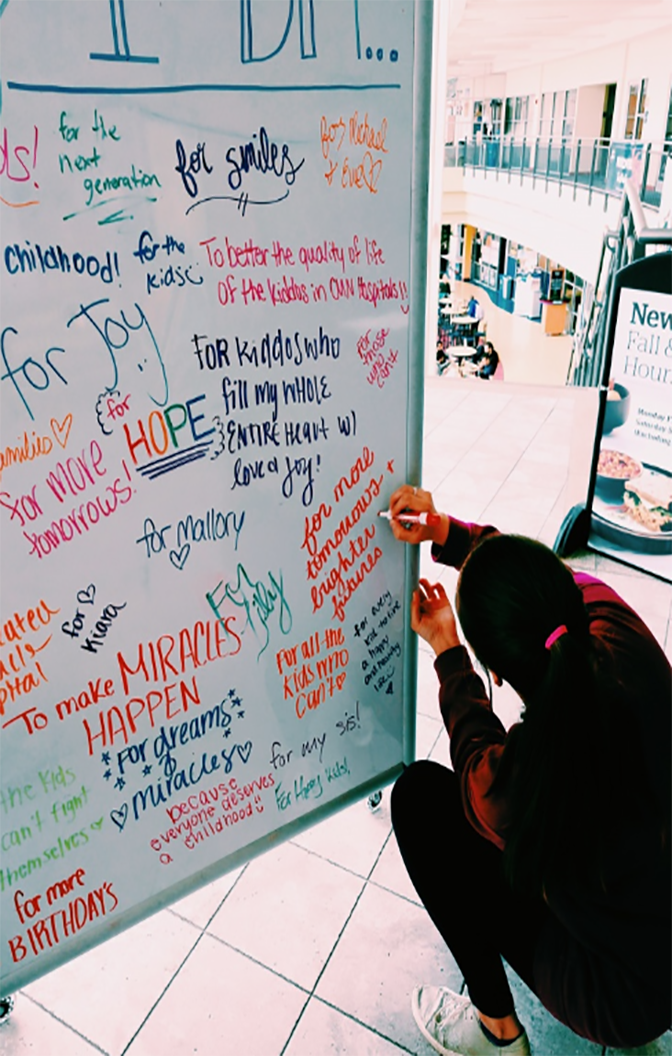 for the
next
generation
for smiles
for Michael
+ Eve
childhood!
for the
kids
To better the quality of life
of the kiddos in CMN Hospitals!!
for Joy
FOR kiddos who
fill my WHOLE
ENTIRE Heart w/
love & joy!
for
those
who
can't
for
HOPE
families
for more
tomorrows!
for Mallory
for more
tomorrows +
brighter
futures
For
for
Kiara
for every
kid to live
a happy
and healthy
life
To make MIRACLES
HAPPEN
for all the
kids who
can't
for dreams
&
miracles
for my sis!
because
everyone deserves
a childhood!
For Happy Kids!
the kids
can't fight
themselves
for more
BIRTHDAYS
New
Fall &
Hour